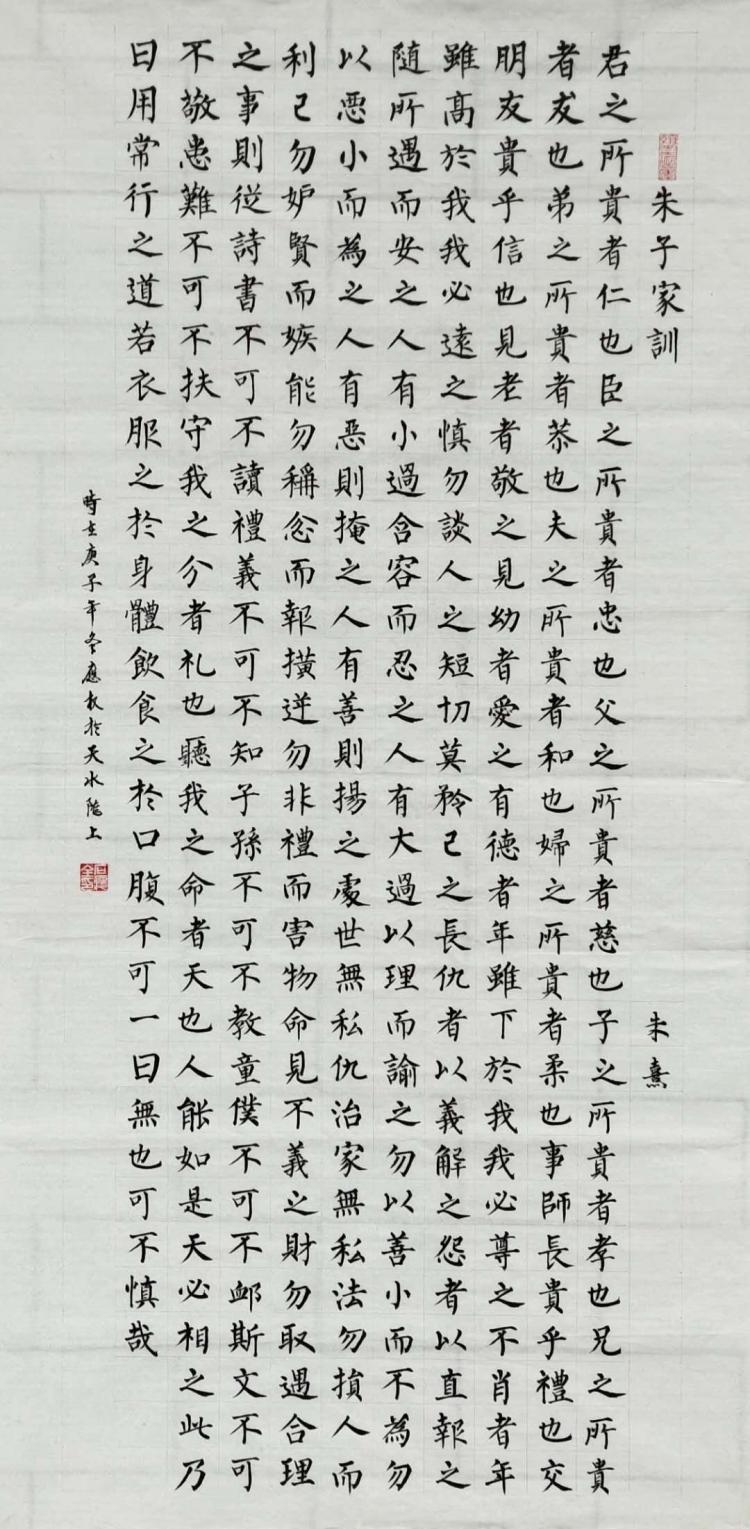 朱子家訓 朱熹
君之所貴者仁也臣之所貴者忠也父之所貴者慈也子之所貴者孝也兄之所貴
者友也弟之所貴者恭也夫之所貴者和也婦之所貴者柔也事師長貴乎禮也交
朋友貴乎信也見老者敬之見幼者愛之有德者年雖下於我我必尊之不肖者年
雖高於我我必遠之慎勿談人之短切莫矜己之長仇者以義解之怨者以直報之
隨所遇而安之人有小過含容而忍之人有大過以理而諭之勿以善小而不為勿
以惡小而為之人有惡則掩之人有善則揚之處世無私仇治家無私法勿損人而
利己勿妒賢而嫉能勿稱忿而報橫逆勿非禮而害物命見不義之財勿取遇合理
之事則從詩書不可不讀禮義不可不知子孫不可不教童僕不可不卹斯文不可
不敬患難不可不扶守我之分者礼也聽我之命者天也人能如是天必相之此乃
日用常行之道若衣服之於身體飲食之於口腹不可一日無也可不慎哉
時在庚子年冬應教於天水隴上